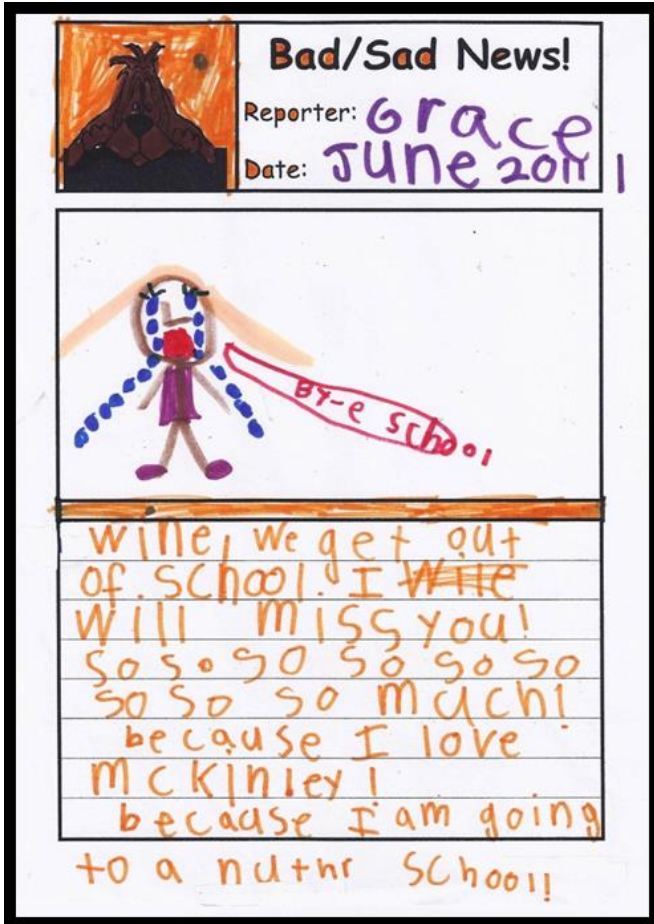 Bad/Sad News!
Reporter: Grace
Date: June 2011
BY-e School
wine, we get out
of school. I wile
will miss you!
So so so so so so
so so so much!
because I love
mckinley!
because I am going
to a nuthr school!